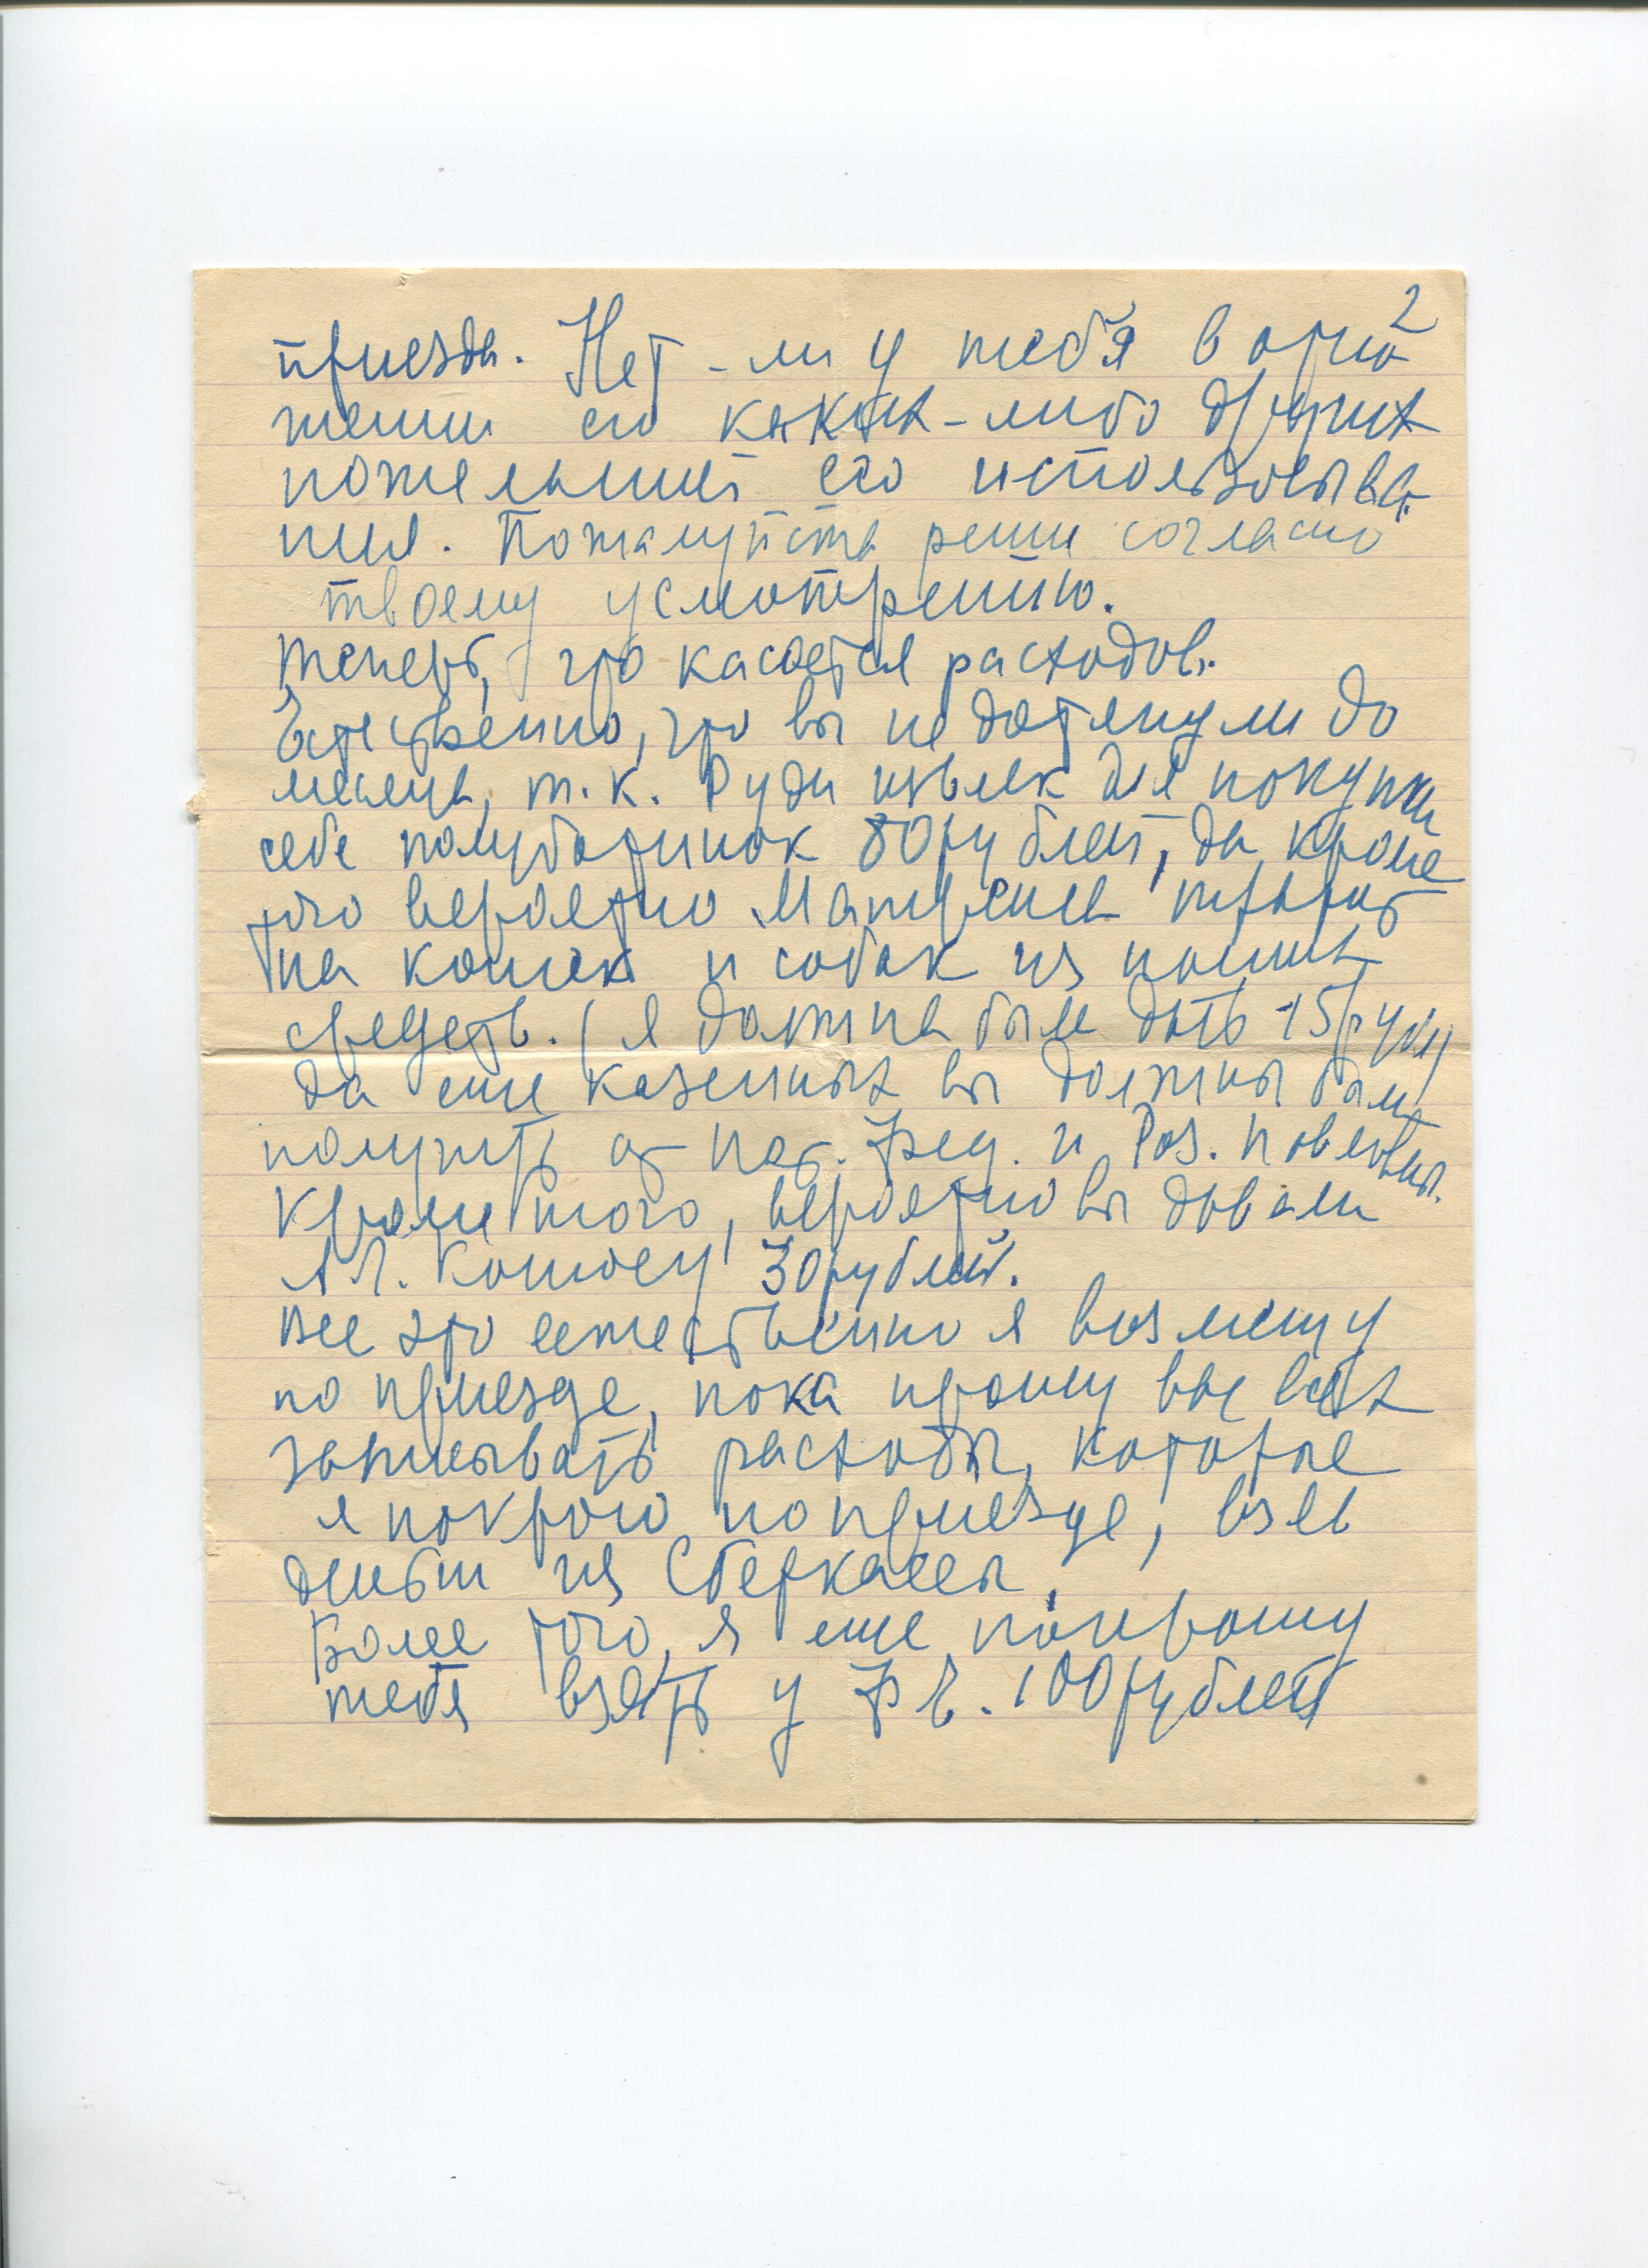 2
приезда. Нет-ли у тебя в отно
шении его каких-либо других
пожеланий его использовыва-
ния. Пожалуйста реши согласно
твоему усмотрению.
Теперь, что касается расходов.
Естественно, что вы не дотянули до
месяца, т.к. Руди извлек для покупки
себе полуботинок 80 рублей, да кроме
того вероятно Матрена тратит
на кошек и собак из наших
средств. (я должна была дать 15 рубл)
да еще казенных вы должны были
получить от Нат. Фед. и Роз. Павловны.
Кроме того, вероятно вы давали
А.Л. 30 рублей.
Все это естественно я возмещу
по приезде, пока прошу вас всех
записывать расходы, которые
я покрою по приезде, взяв
деньги из Сберкассы.
Более того, я еще попрошу
тебя взять у 100 рублей